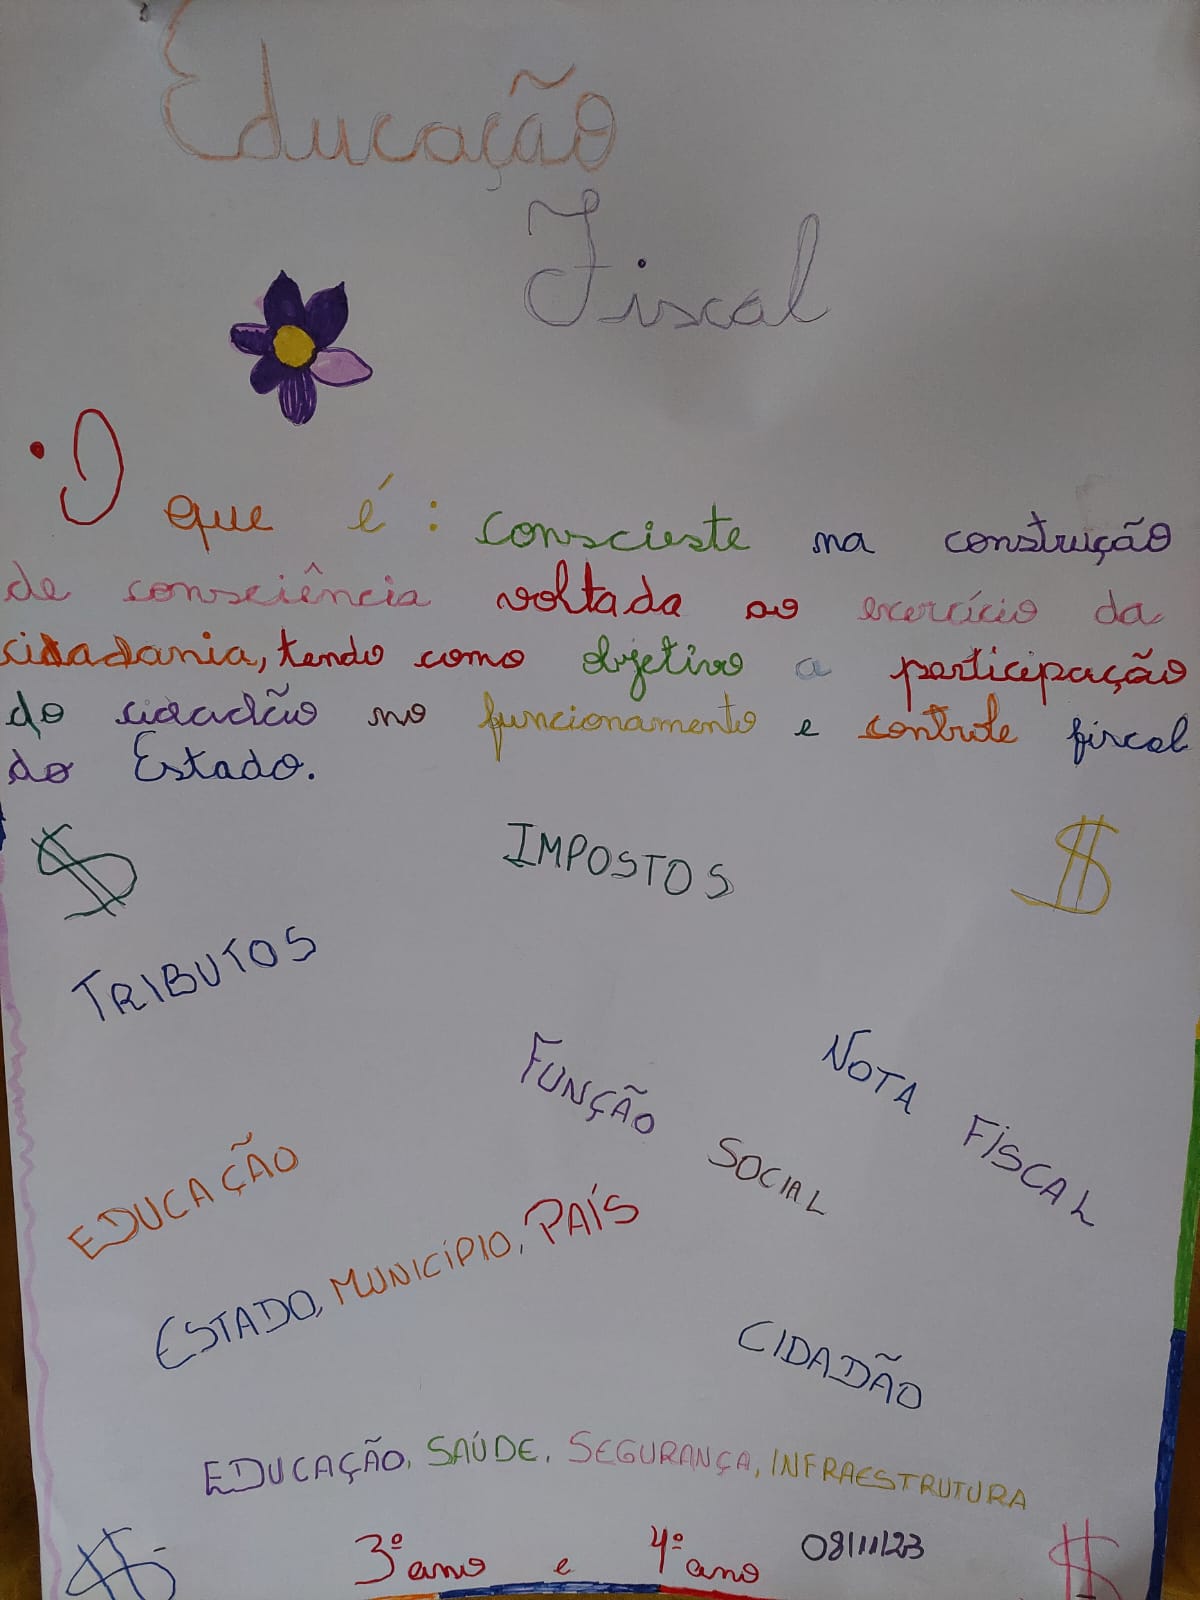 Educação
Fiscal
• O que é: conscieste na construção
de consciência voltada ao exercício da
cidadania, tendo como objetivo a participação
do cidadão no funcionamento e controle fiscal
do Estado.
$ IMPOSTOS $
TRIBUTOS
FUNÇÃO SOCIAL
NOTA FISCAL
EDUCAÇÃO
ESTADO, MUNICÍPIO, PAÍS
CIDADÃO
EDUCAÇÃO, SAÚDE, SEGURANÇA, INFRAESTRUTURA
$ 3º ano e 4º ano 08/11/23 $